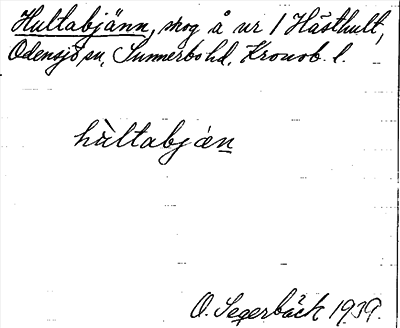 Hultabjänn, skog å nr 1 Hästhult,
Odensjö sn, Sunnerbo hd, Kronob. l.
hùltabjæ̀n
O. Segerbäck 1939.